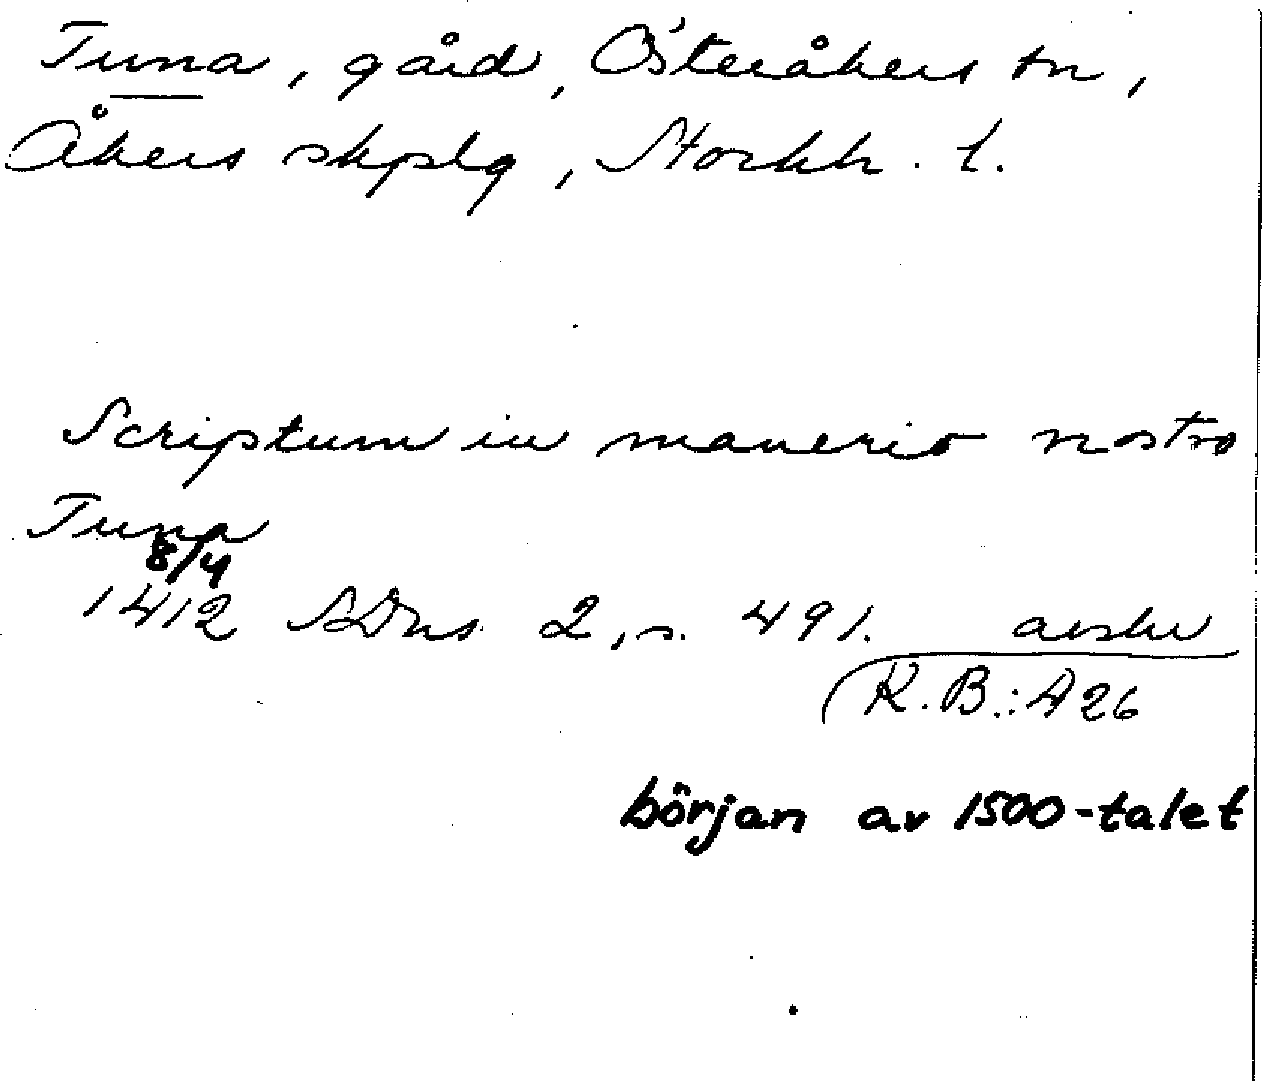 Tuna, gård, Österåkers sn,
Åkers skplg, Stockh. l.
Scriptum in manerio nostro
Tuna
8/4
1412 SDns 2, s. 491. avskr
K.B.: A 26
början av 1500-talet